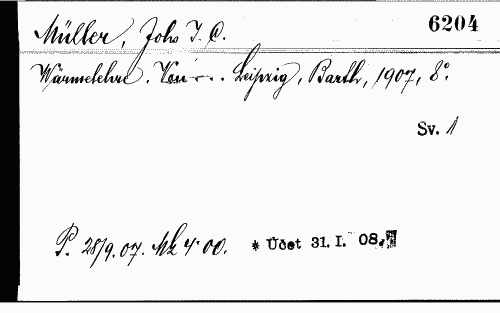 6204
Müller, Johs J. C.
Wärmelehre. Von . . . Leipzig, Barth, 1907, 8°.
Sv. 1
P. 28/9.07. Mk 4.00. * Účet 31. I. 08.